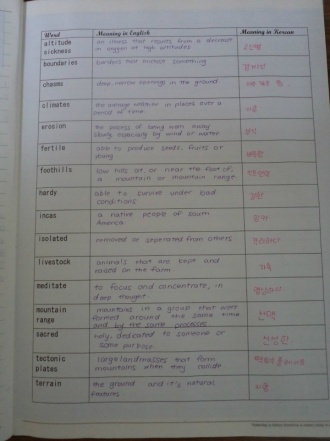 Word Meaning in English Meaning in Korean
altitude an illness that results from a decrease
sickness in oxygen at high altitudes
고산병
bounderies borders that enclose something
경계선
chasms deep, narrow openings in the ground
climates the average weather in places over a
period of time.
기후
erosion the process of being worn away
slowly especially by wind or water
부식
fertile able to produce seeds, fruits or
young
비옥한
foothills low hills at or near the foot of
a mountain or mountain range
hardy able to survive under bad
conditions
강한
incas a native people of South
America
isolated removed or seperated from others
livestock animals that are kept and
raised on the farm
가축
meditate to focus and concentrate, in
deep thought
명상하다
mountain mountains in a group that were
range formed around the same time
and by the same processes
산맥
sacred holy, dedicated to someone or
some purpose
신성한
tectonic large landmasses that form
plates mountains when they collide
terrain the ground and it's natural
features
지형